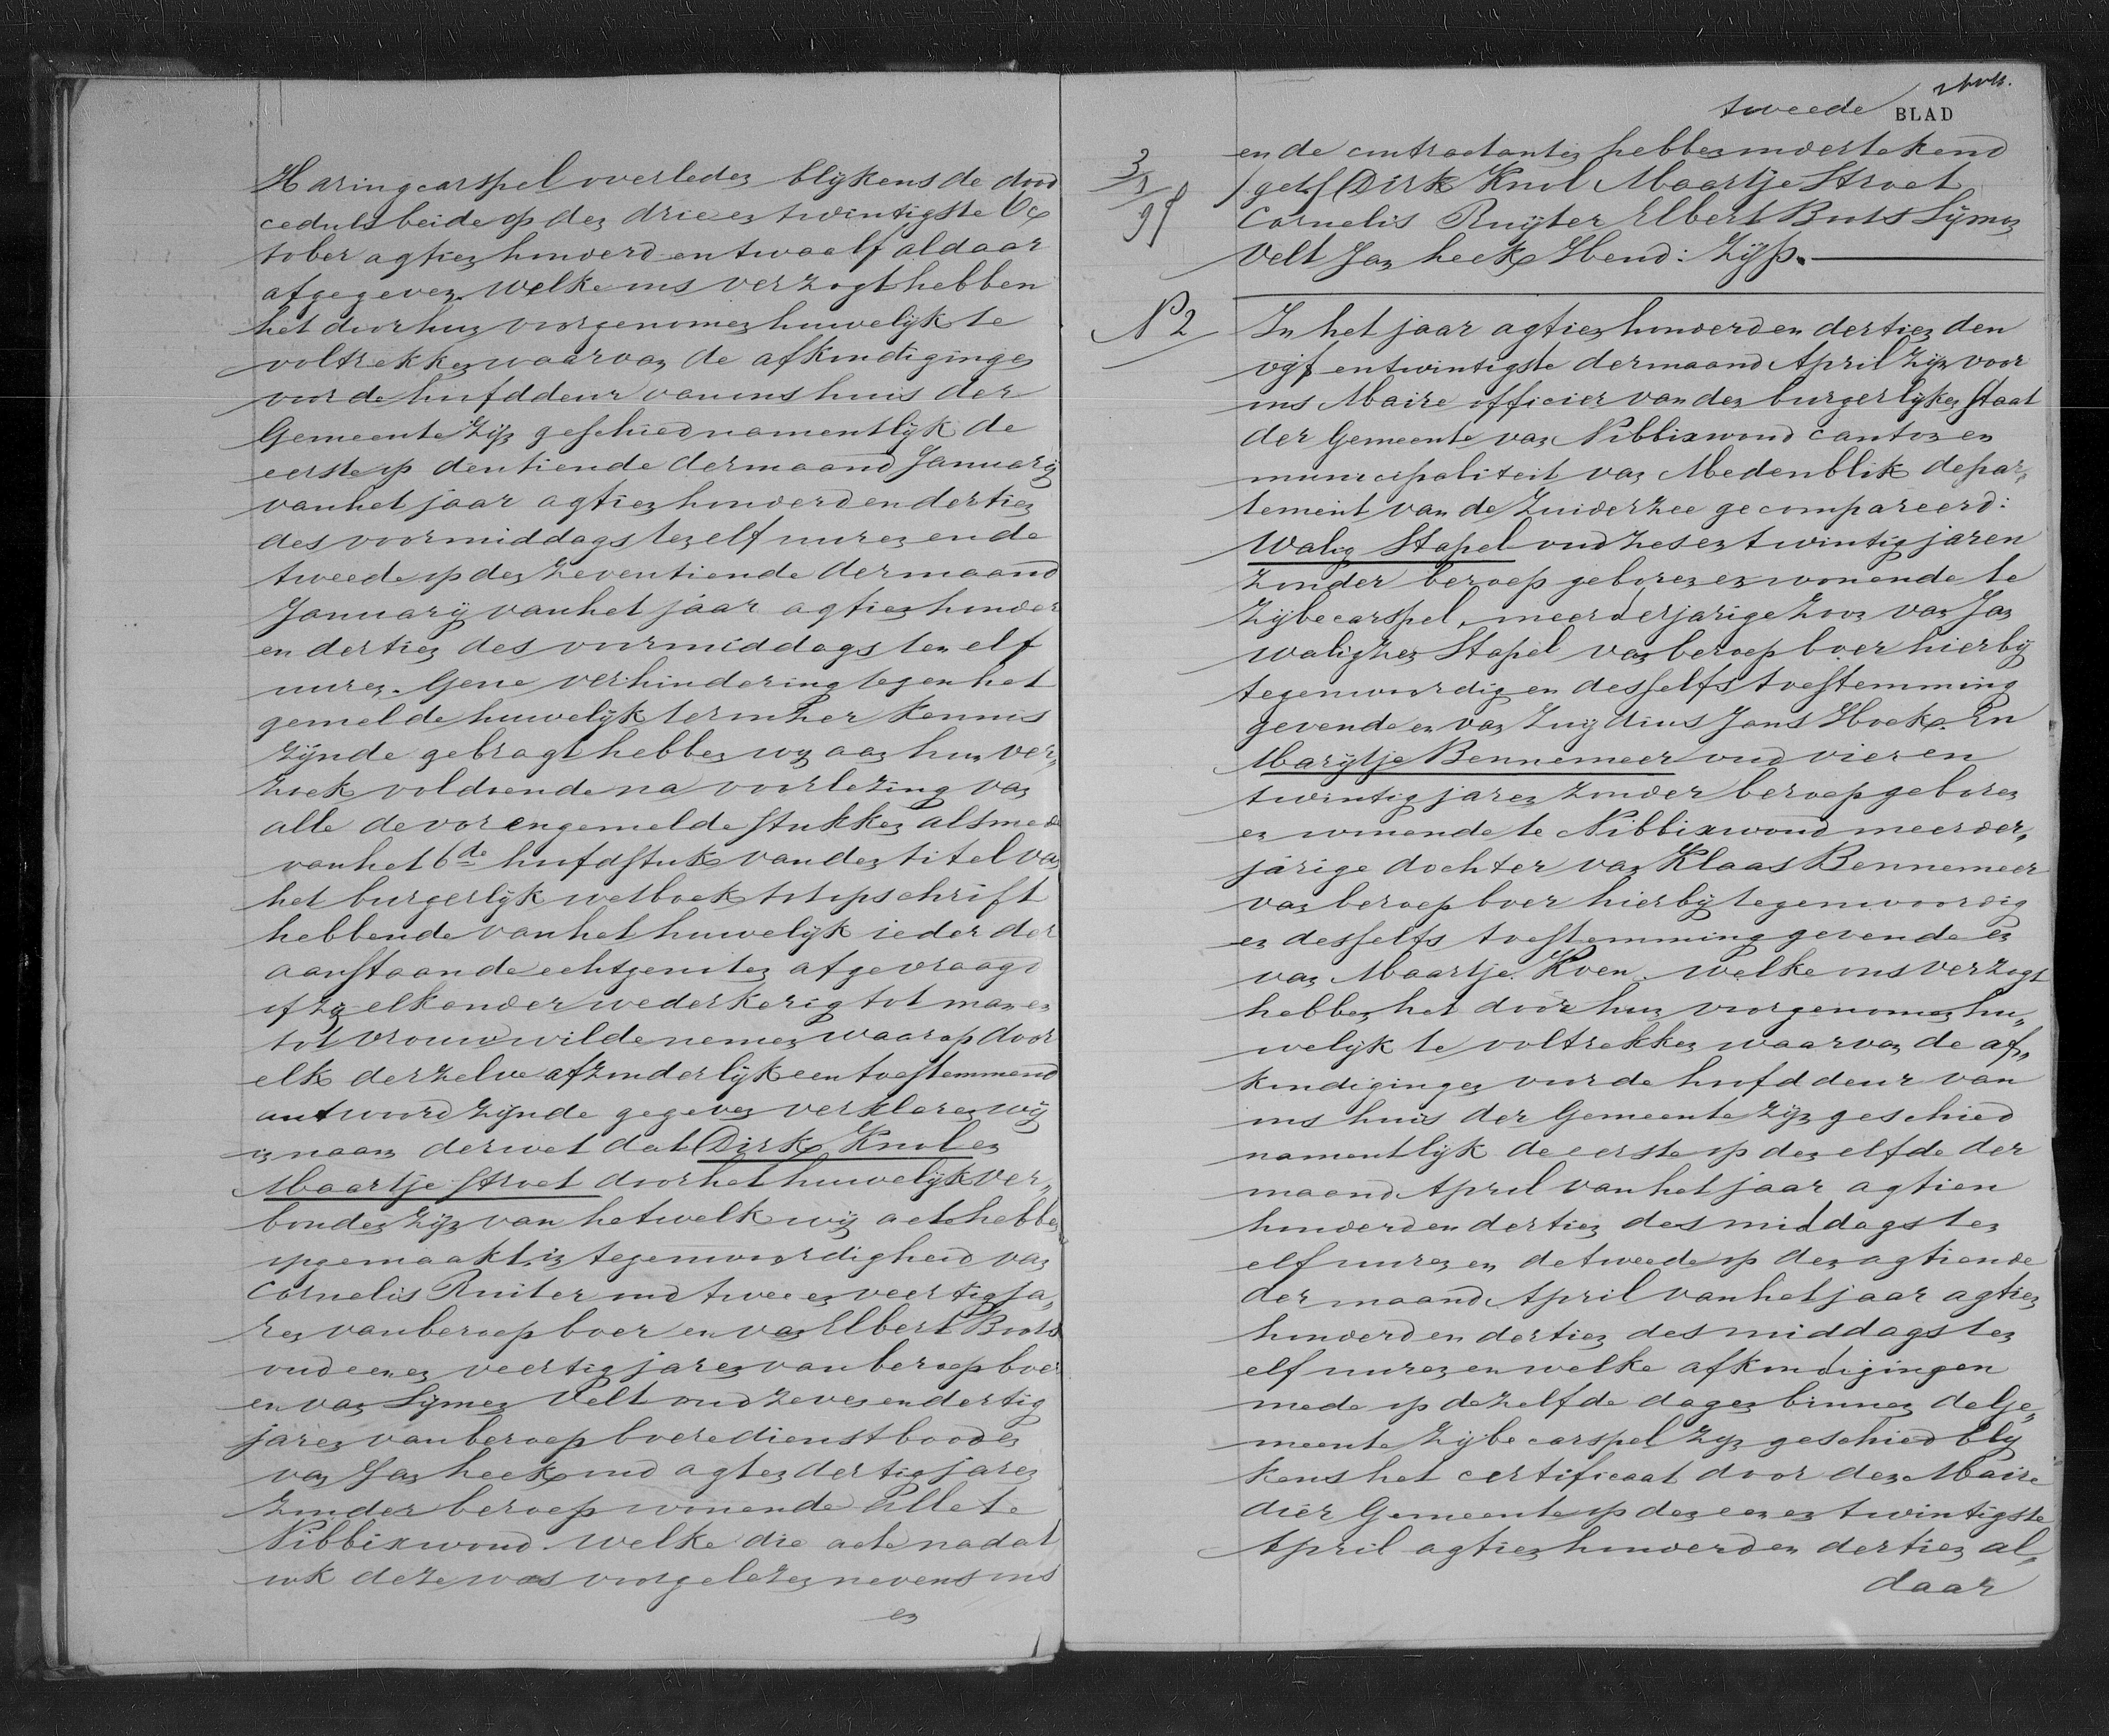 Haringcarspel overleden blijkens de dood
cedulsbeide op den drie en twintigste Oc„
tober agtien honderd en twaalf aldaar
afgegeven. Welke ons verzogt hebben
het door hun voorgenomen huwelijk te
voltrekken waarvan de afkondigingen
voor de hoofddeur van ons huis der
Gemeente Zijn geschied namentlijk de
eerste op den tiende der maand Januarij
van het jaar agtien honderd en dertien
des voormiddags ten elf uuren en de
tweede op den zeventiende der maand
Januarij van het jaar agtien honder
en dertien des voormiddags ten elf
uuren. Gene verhindering tegen het
gemelde huwelijk ter onzer kennis
zijnde gebragt hebben wy aan hun ver„
zoek voldoende na voorlezing van
alle de vorengemelde stukken alsmede
van het 6de hoofdstuk van den titel van
het burgerlijk wetboek tot opschrift
hebbende van het huwelijk ieder der
aanstaande echtgenoten afgevraagd
of zy elkander wederkerig tot man en
tot vrouw wilde nemen waarop door
elk derzelve afzonderlijk een toestemmend
antwoord zijnde gegeven verklaren wij
in naam der wet dat Dirk Knol en
Maartje Stroet door het huwelijk ver„
bonden zijn van hetwelk wij acte hebben
opgemaakt in tegenwoordigheid van
Cornelis Ruiter oud twee en veertig ja„
ren van beroep boer en van Elbert Buts
oud een en veertig jaren van beroep boer
en van Symen Velt oud zeven en dertig
jaren van beroep boeredienstboode en
van Jan heek oud agt en dertig jaren
zonder beroep wonende alle te
Nibbixwoud. Welke die acte nadat
ook deze was voorgelezen nevens ons
en
tweede BLAD
en de contractanten hebben ondertekend
/get/ Dirk Knol Maartje Stroet
Cornelis Ruijter Elbert Buts Sijmon
Velt Jan heek Hend: Zijp.
No 2
In het jaar agtien honderd en dertien den
vijf en twintigste der maand April zijn voor
ons Maire officier van den burgerlijken staat
der Gemeente van Nibbixwoud canton en
municipaliteit van Medenblik depar„
tement van de Zuiderzee gecompareerd:
Walig Stapel oud zes en twintig jaren
zonder beroep geboren en wonende te
Zijbecarspel, meerderjarige zoon van Jan
Waligzen Stapel van beroep boer hierbij
tegenwoordig en desselfs toestemming
gevende en van Zuijdius Jans Hoek. En
Marijtje Bennemeer oud vier en
twintig jaren zonder beroep geboren
en wonende te Nibbixwoud meerder„
jarige dochter van Klaas Bennemeer
van beroep boer hierbij tegenwoordig
en desselfs toestemming gevende en
van Maartje Koen. Welke ons verzogt
hebben het door hun voorgenomen hu„
welijk te voltrekken waarvan de af„
kondigingen voor de hoofddeur van
ons huis der Gemeente zijn geschied
namentlijk de eerste op den elfde der
maand April van het jaar agtien
honderd en dertien des middags ten
elf uuren en de tweede op den agtiende
der maand April van het jaar agtien
honderd en dertien des middags ten
elf uuren en welke afkondigingen
mede op dezelfde dagen binnen de Ge„
meente Zijbecarspel zijn geschied bly
kens het certificaat door den Maire
dier Gemeente op den een en twintigste
April agtien honderd en dertien al„
daar